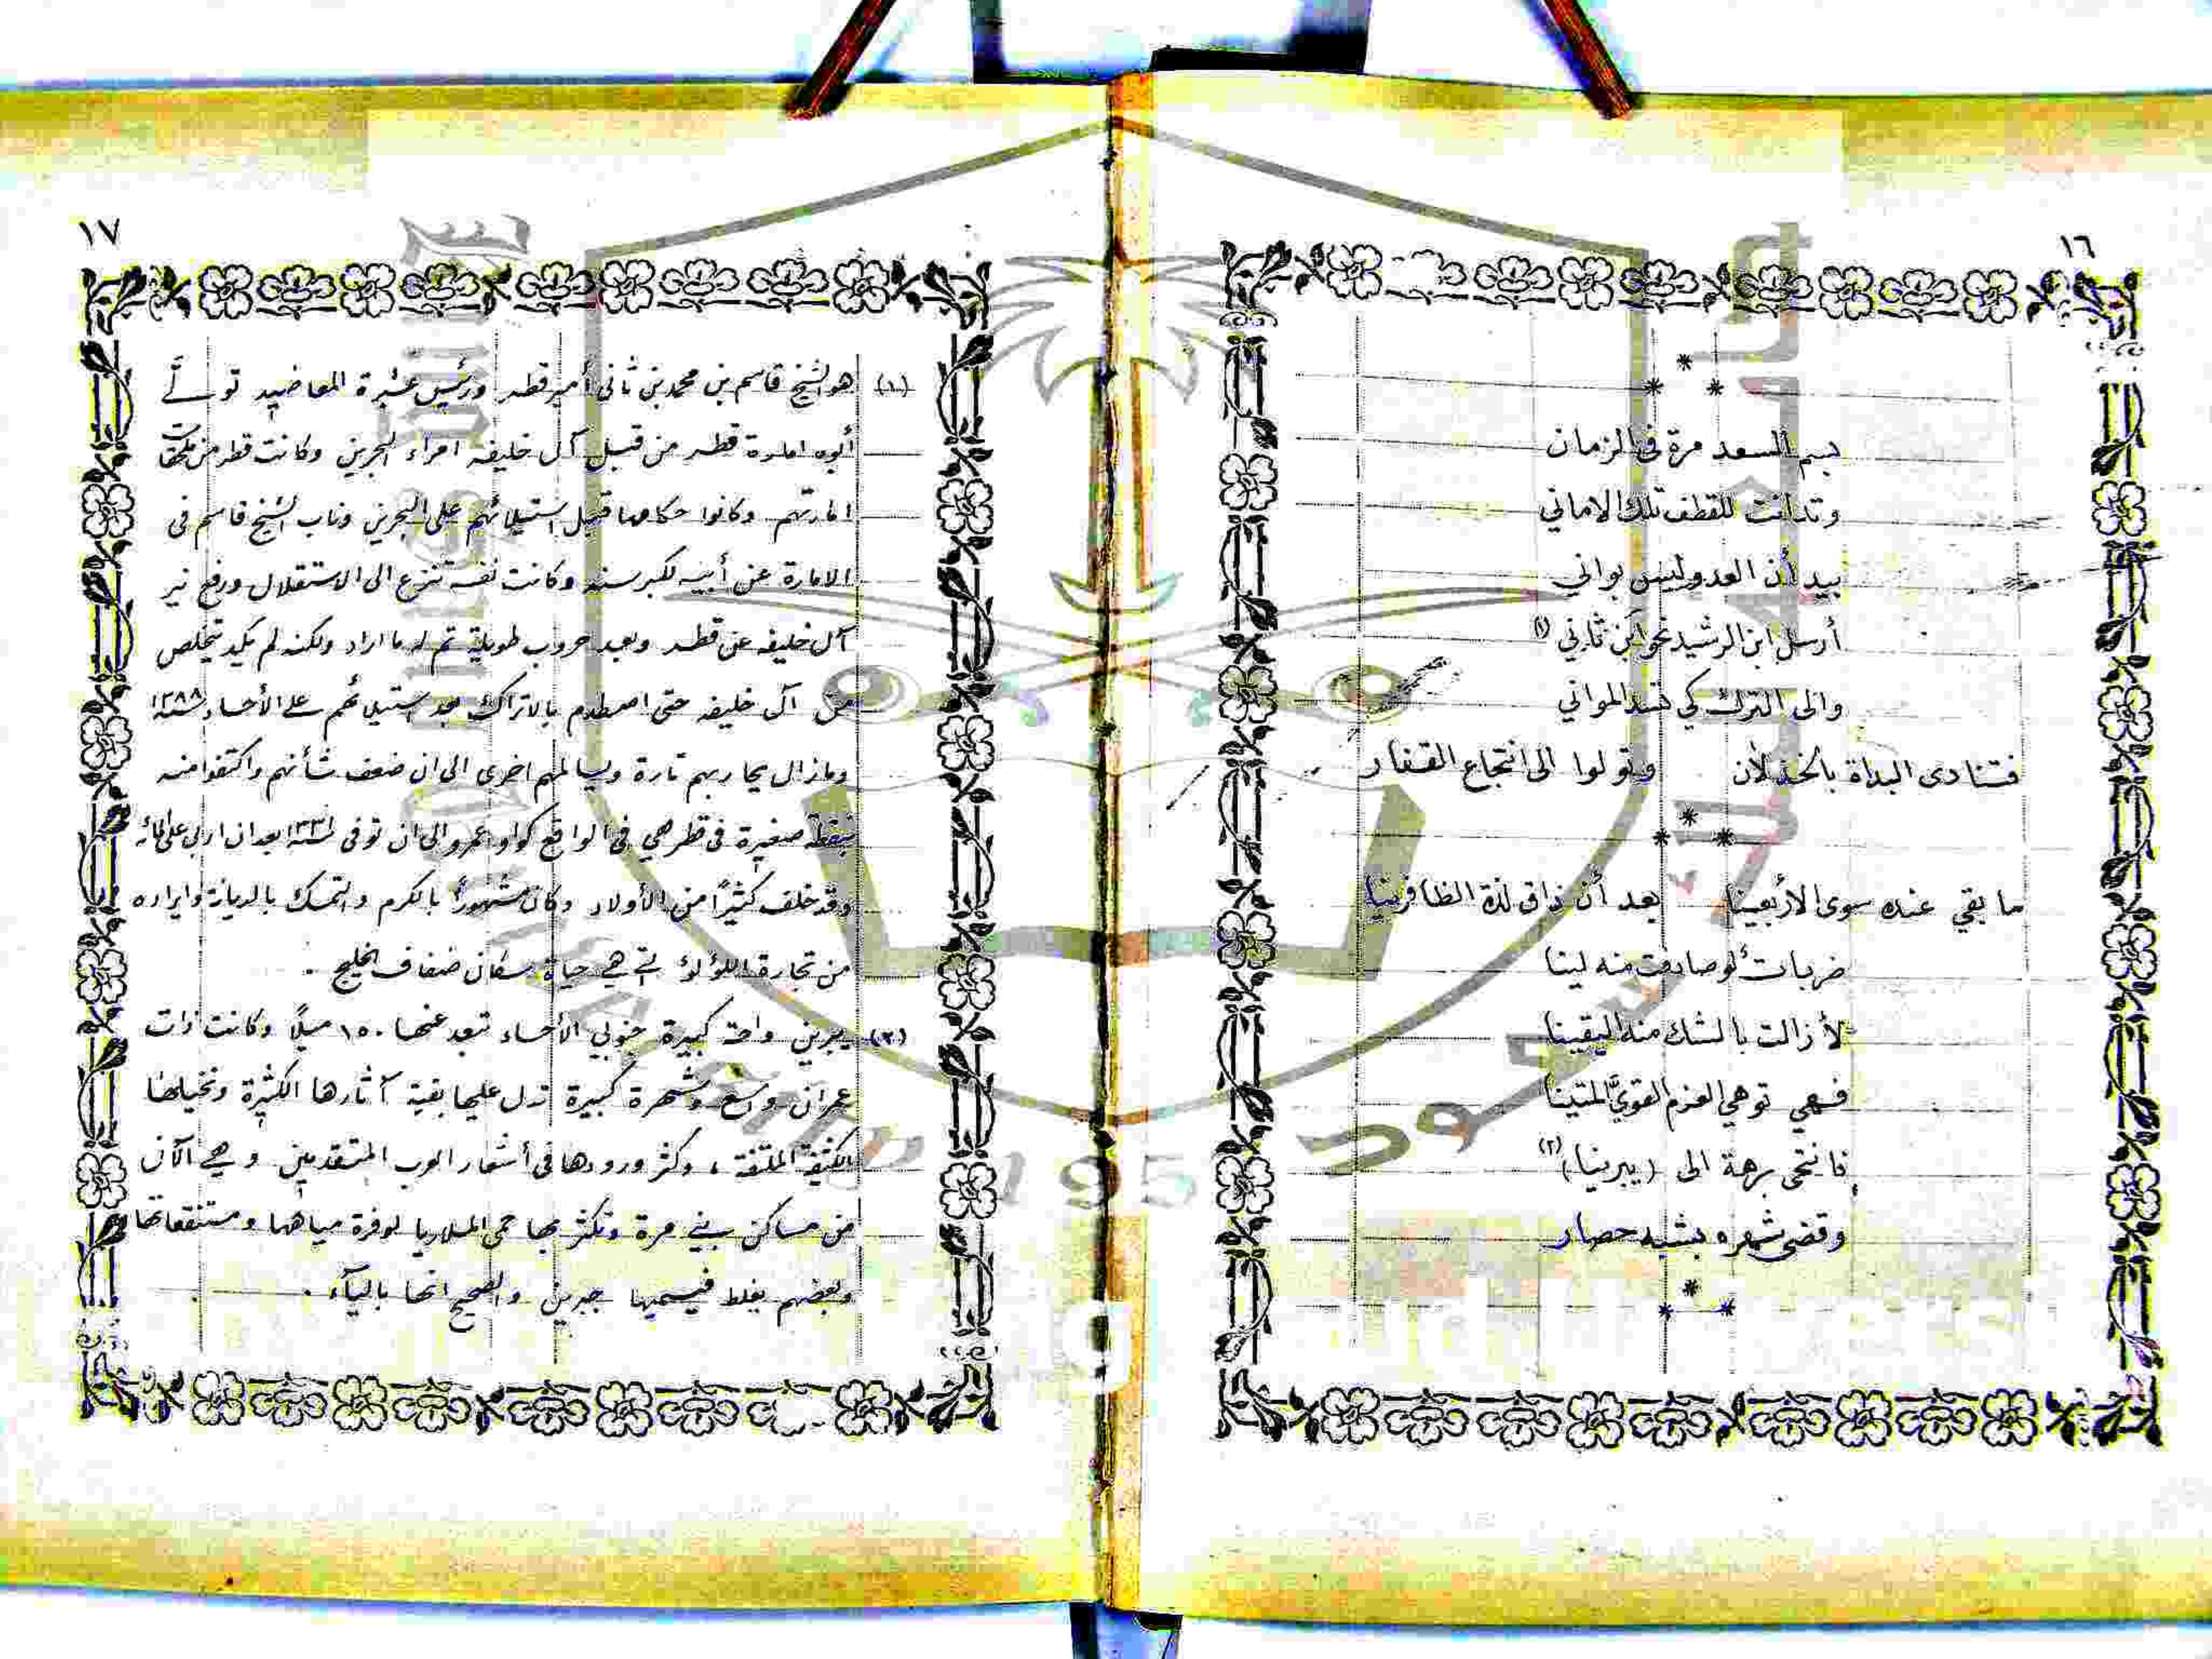 ١٦
بسم السعد مرة في الزمان
وتدانت للقطف تلك الاماني
بيد أن العدو ليس بواني
أرسل ابن الرشيد نحو ابن ثاني (١)
والى الترك كي تسد المواني
فتنادى البداة بالخذلان وتولوا الى انتجاع القفار
ما بقي عنده سوى الأربعينا بعد أن ذاق لذة الظافرينا
ضربات لو صادفت منه لينا
لأزالت بالشك منه اليقينا
فهي توهي العزم القويَّ المتينا
فانتحى برهة الى (يبرينا) (٢)
وقضى شهره بشبه حصار
١٧
(١) هو الشيخ قاسم بن محمد بن ثاني أمير قطر ورئيس عشيرة المعاضيد تولى
أبوه امارة قطر من قبل آل خليفه امراء البحرين وكانت قطر من
امارتهم وكانوا حكامها قبل استيلائهم على البحرين وناب الشيخ قاسم في
الامارة عن أبيه لكبر سنه وكانت نفسه تنزع الى الاستقلال ورفع نير
آل خليفه عن قطر وبعد حروب طويلة تم له ما اراد ولكنه لم يكد يتخلص
من آل خليفه حتى اصطدم بالاتراك بعد استيلائهم على الأحساء سنة ١٢٨٨
ومازال يحاربهم تارة ويسالمهم اخرى الى ان ضعف شأنهم واكتفوا منه
بنقطة صغيرة في قطر هي في الواقع كواو عمرو الى ان توفى سنة ١٣٣١ بعد ان اربى على المائه
وقد خلف كثيرًا من الأولاد وكان مشهورًا بالكرم والتمسك بالديانة وايراده
من تجارة اللؤلؤ التي هي حياة سكان ضفاف الخليج .
(٢) يبرين واحة كبيرة جنوبي الأحساء تبعد عنها ١٥٠ ميلًا وكانت ذات
عمران واسع وشهرة كبيرة تدل عليها بقية آثارها الكثيرة ونخيلها
الكثيفة الملتفة ، وكثر ورودها في أشعار العرب المتقدمين وهي الآن
من مساكن بني مرة وتكثر بها حمى الملاريا لوفرة مياهها ومستنقعاتها
وبعضهم يغلط فيسميها جبرين والصحيح انها باليآء .